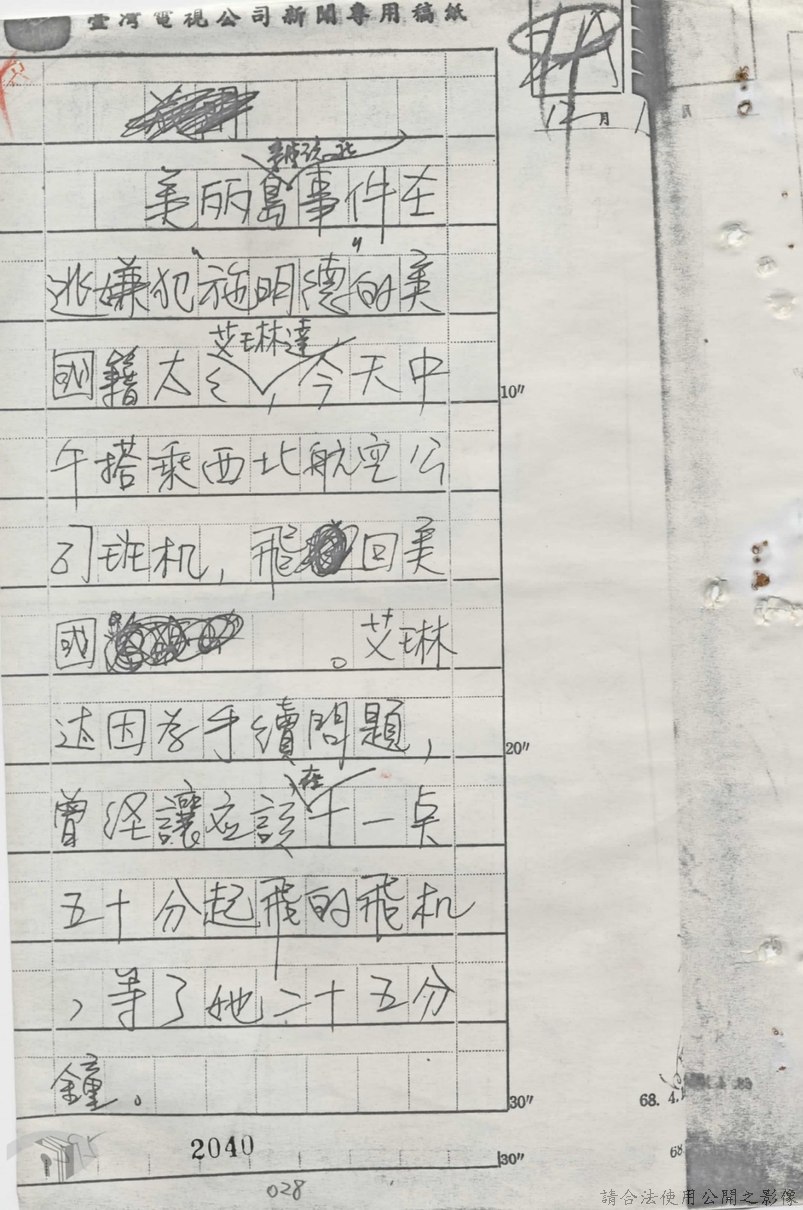 臺灣電視公司新聞專用稿紙
12月1
月
美丽島事件在
逃嫌犯"施明德"的美
艾琳達
國籍太々，今天中
10"
午搭乘西北航空公
司班机，飛回美
國。艾琳
达因為手續問題，
20"
在
曾经讓应該十一点
五十分起飛的飛机
，等了她二十五分
鐘。
30"
68. 4.
2040
30"
68
028
請合法使用公開之影像